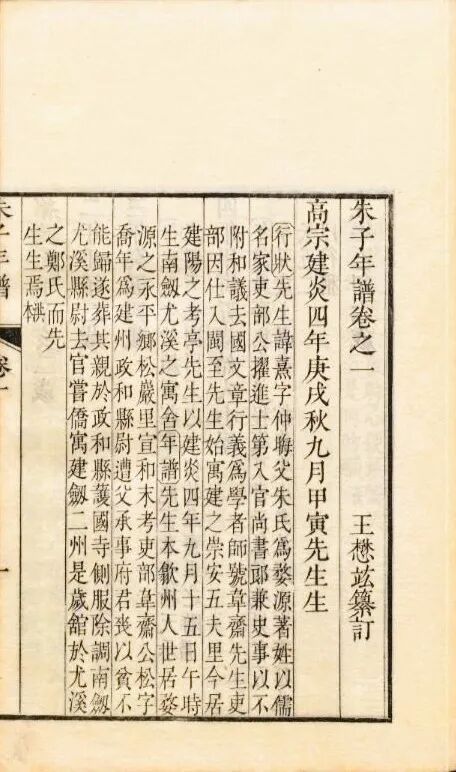 朱子年譜卷之一
王懋竑纂訂
高宗建炎四年庚戌秋九月甲寅先生生
行狀先生諱熹字仲晦父朱氏為婺源著姓以儒
名家吏部公擢進士第入官尚書郎兼史事以不
附和議去國文章行義為學者師號韋齋先生吏
部因仕入閩至先生始寓建之崇安五夫里今居
建陽之考亭先生以建炎四年九月十五日午時
生南劔尤溪之寓舍年譜先生本歙州人世居婺
源之永平鄉松巖里宣和末考吏部韋齋公松字
喬年為建州政和縣尉遭父承事府君喪以貧不
能歸遂葬其親於政和縣護國寺側服除調南劔
尤溪縣尉去官嘗僑寓建劔二州是歲館於尤溪
之鄭氏而先
生生焉
朱子年譜
卷一
一